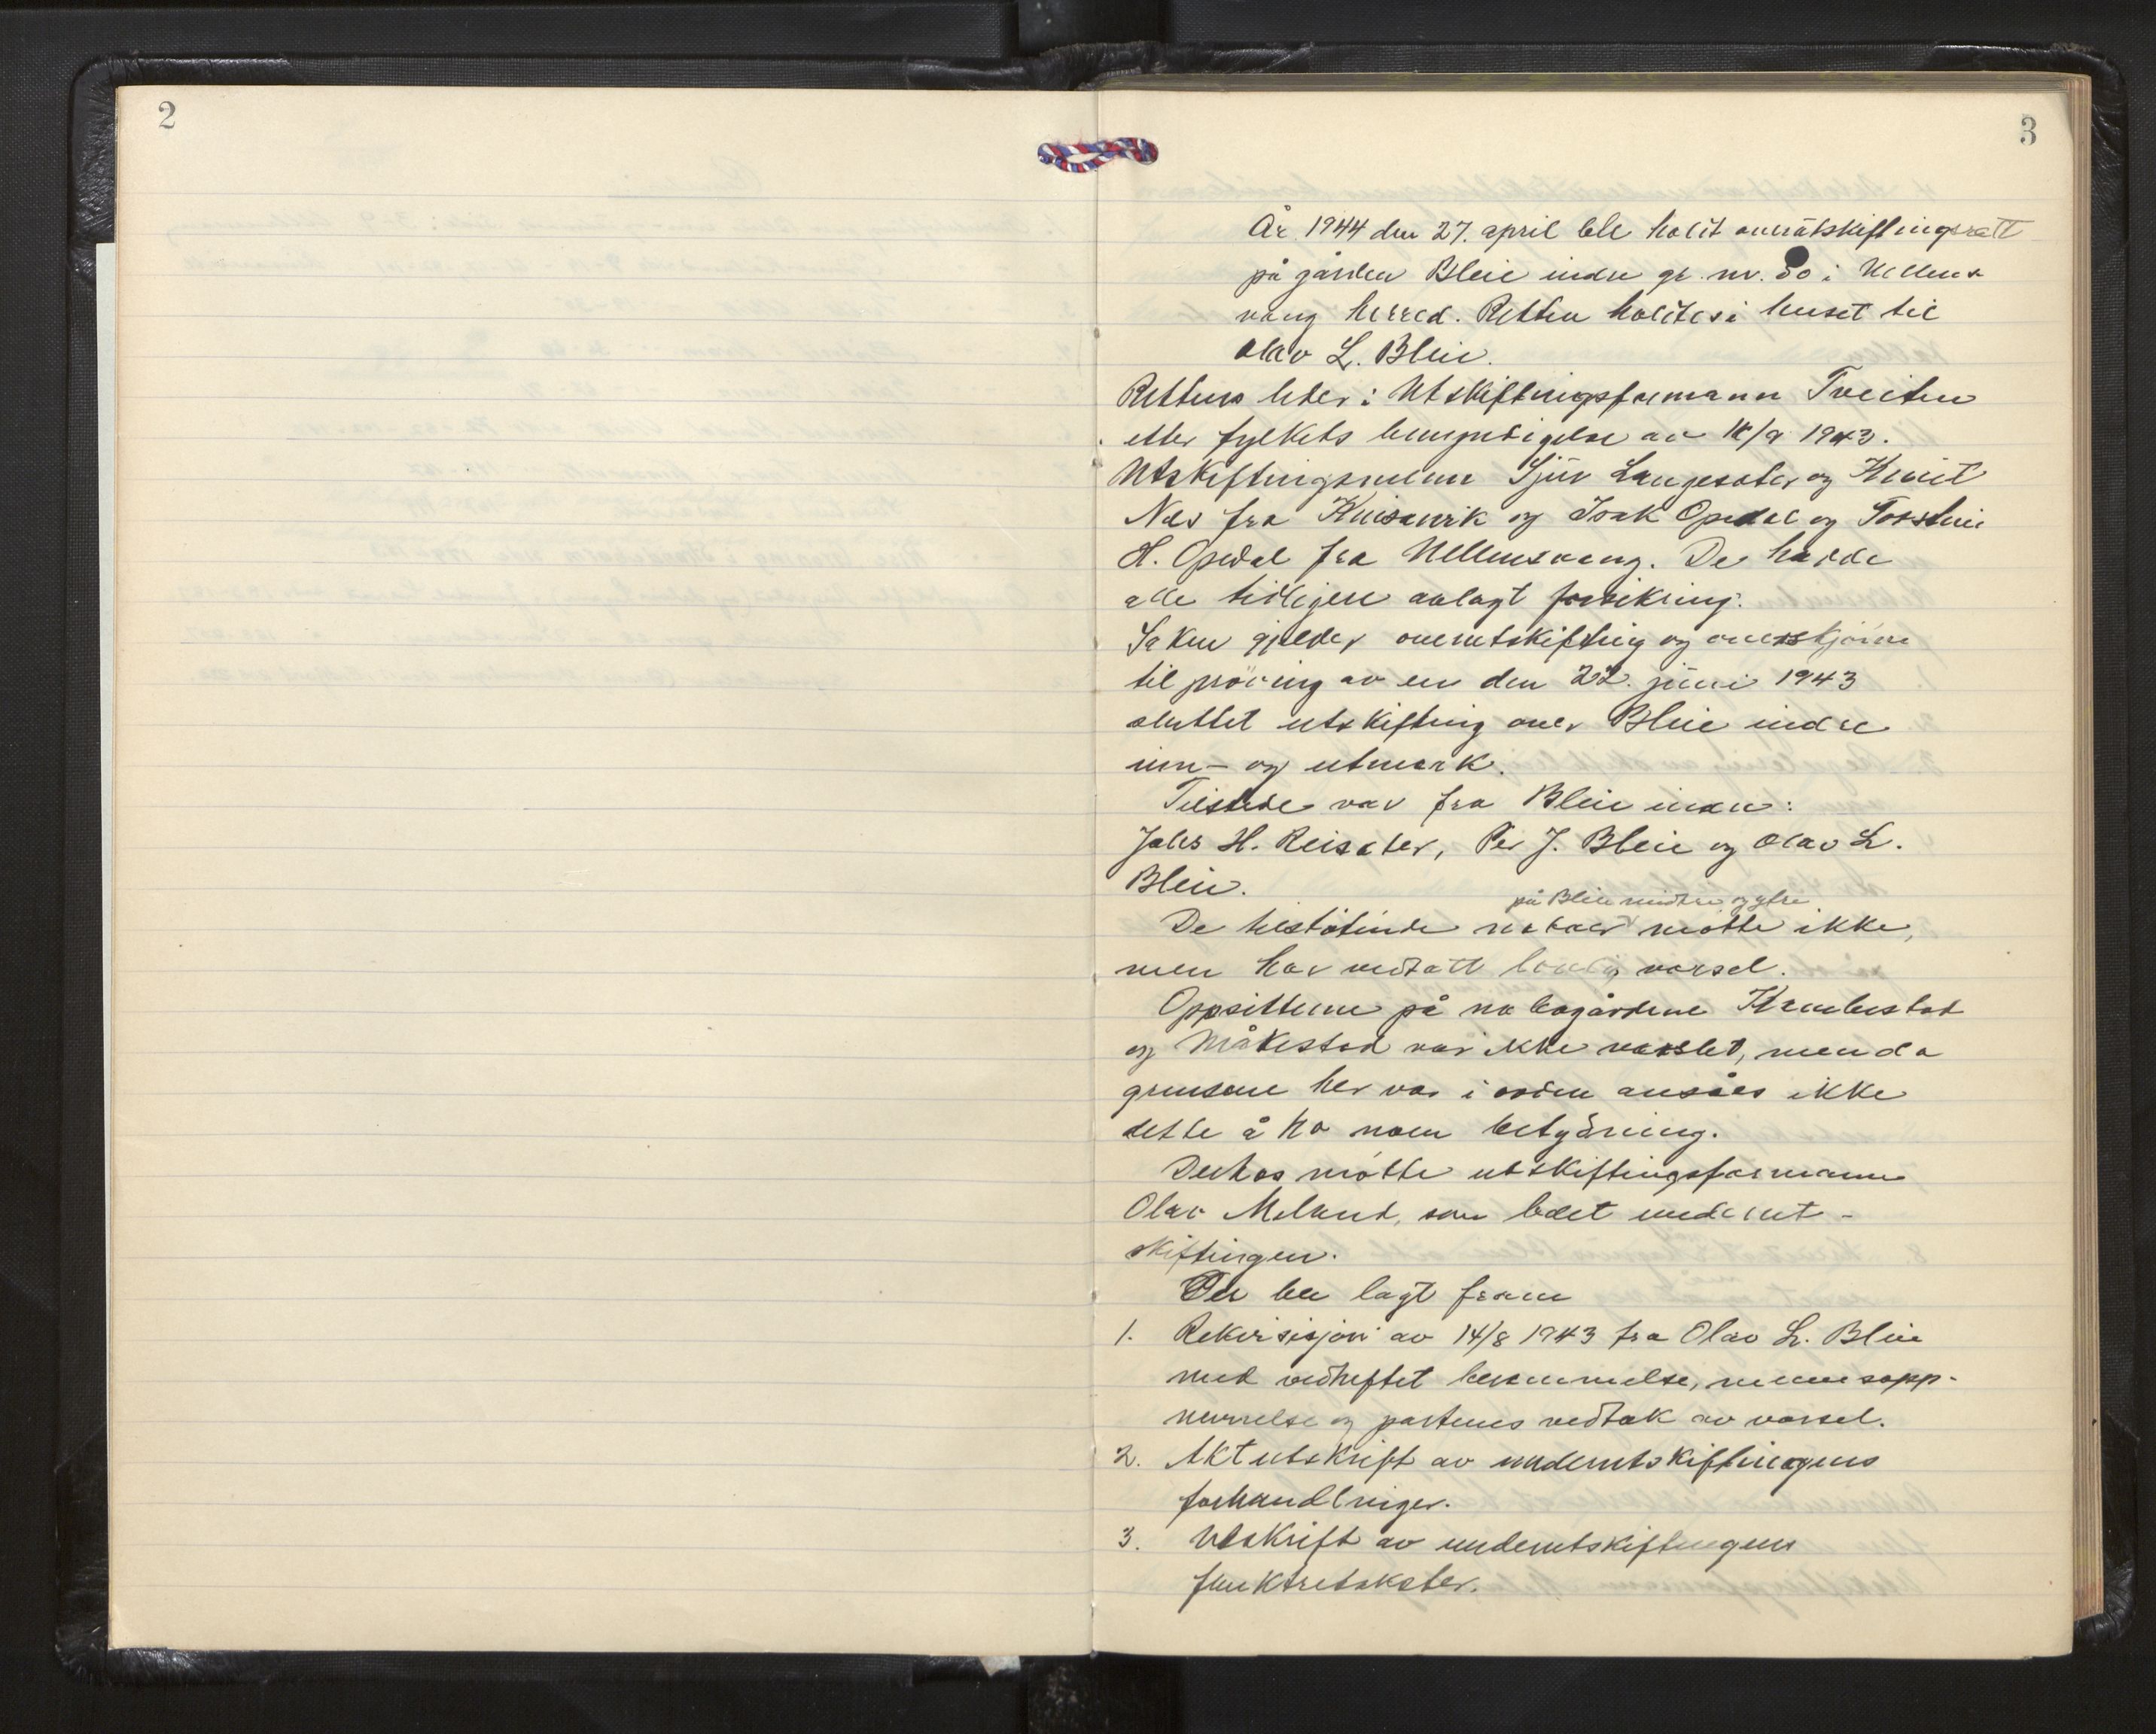 2
3
År 1944 den 27. april ble holdt overutskiftingsrett
på gården Bleie indre gr. nr. 80 i Ullens-
vang herred. Retten holdtes i huset til
Olav L. Bleie.
Rettens leder: Utskiftingsformann Tveiten
etter fylkets bemyndigelse av /9 1943.
Utskiftingsmenn Sjur Langesæter og Knut
Næs fra Kinsarvik og Isak Opedal og Torstein
H. Opedal fra Ullensvang. De hadde
alle tidligere avlagt forsikring.
Saken gjelder overutskifting og overskjønn
til prøving av en den 22. juni 1943
sluttet utskifting over Bleie indre
inn- og utmark.
Tilstede var fra Bleie indre:
H. Reisæter, Per J. Bleie og Olav L.
Bleie.
på Bleie midtre og ytre
De tilstøtende naboer møtte ikke,
men har vedtatt lovlig varsel.
Oppsitterne på nabogårdene Krambustad
og Måkestad var ikke varslet, men da
grensene her var i orden ansåes ikke
dette å ha noen betydning.
Dessuten møtte utskiftingsformann
Olav Meland, som ledet underut-
skiftingen.
Der ble lagt fram
1. Rekvisisjon av 14/8 1943 fra Olav L. Bleie
med vedheftet berammelse, mennsopp-
nevnelse og partenes vedtak av varsel.
2. Aktutskrift av underutskiftingens
forhandlinger.
3. Utskrift av underutskiftingens
frukttretakster.